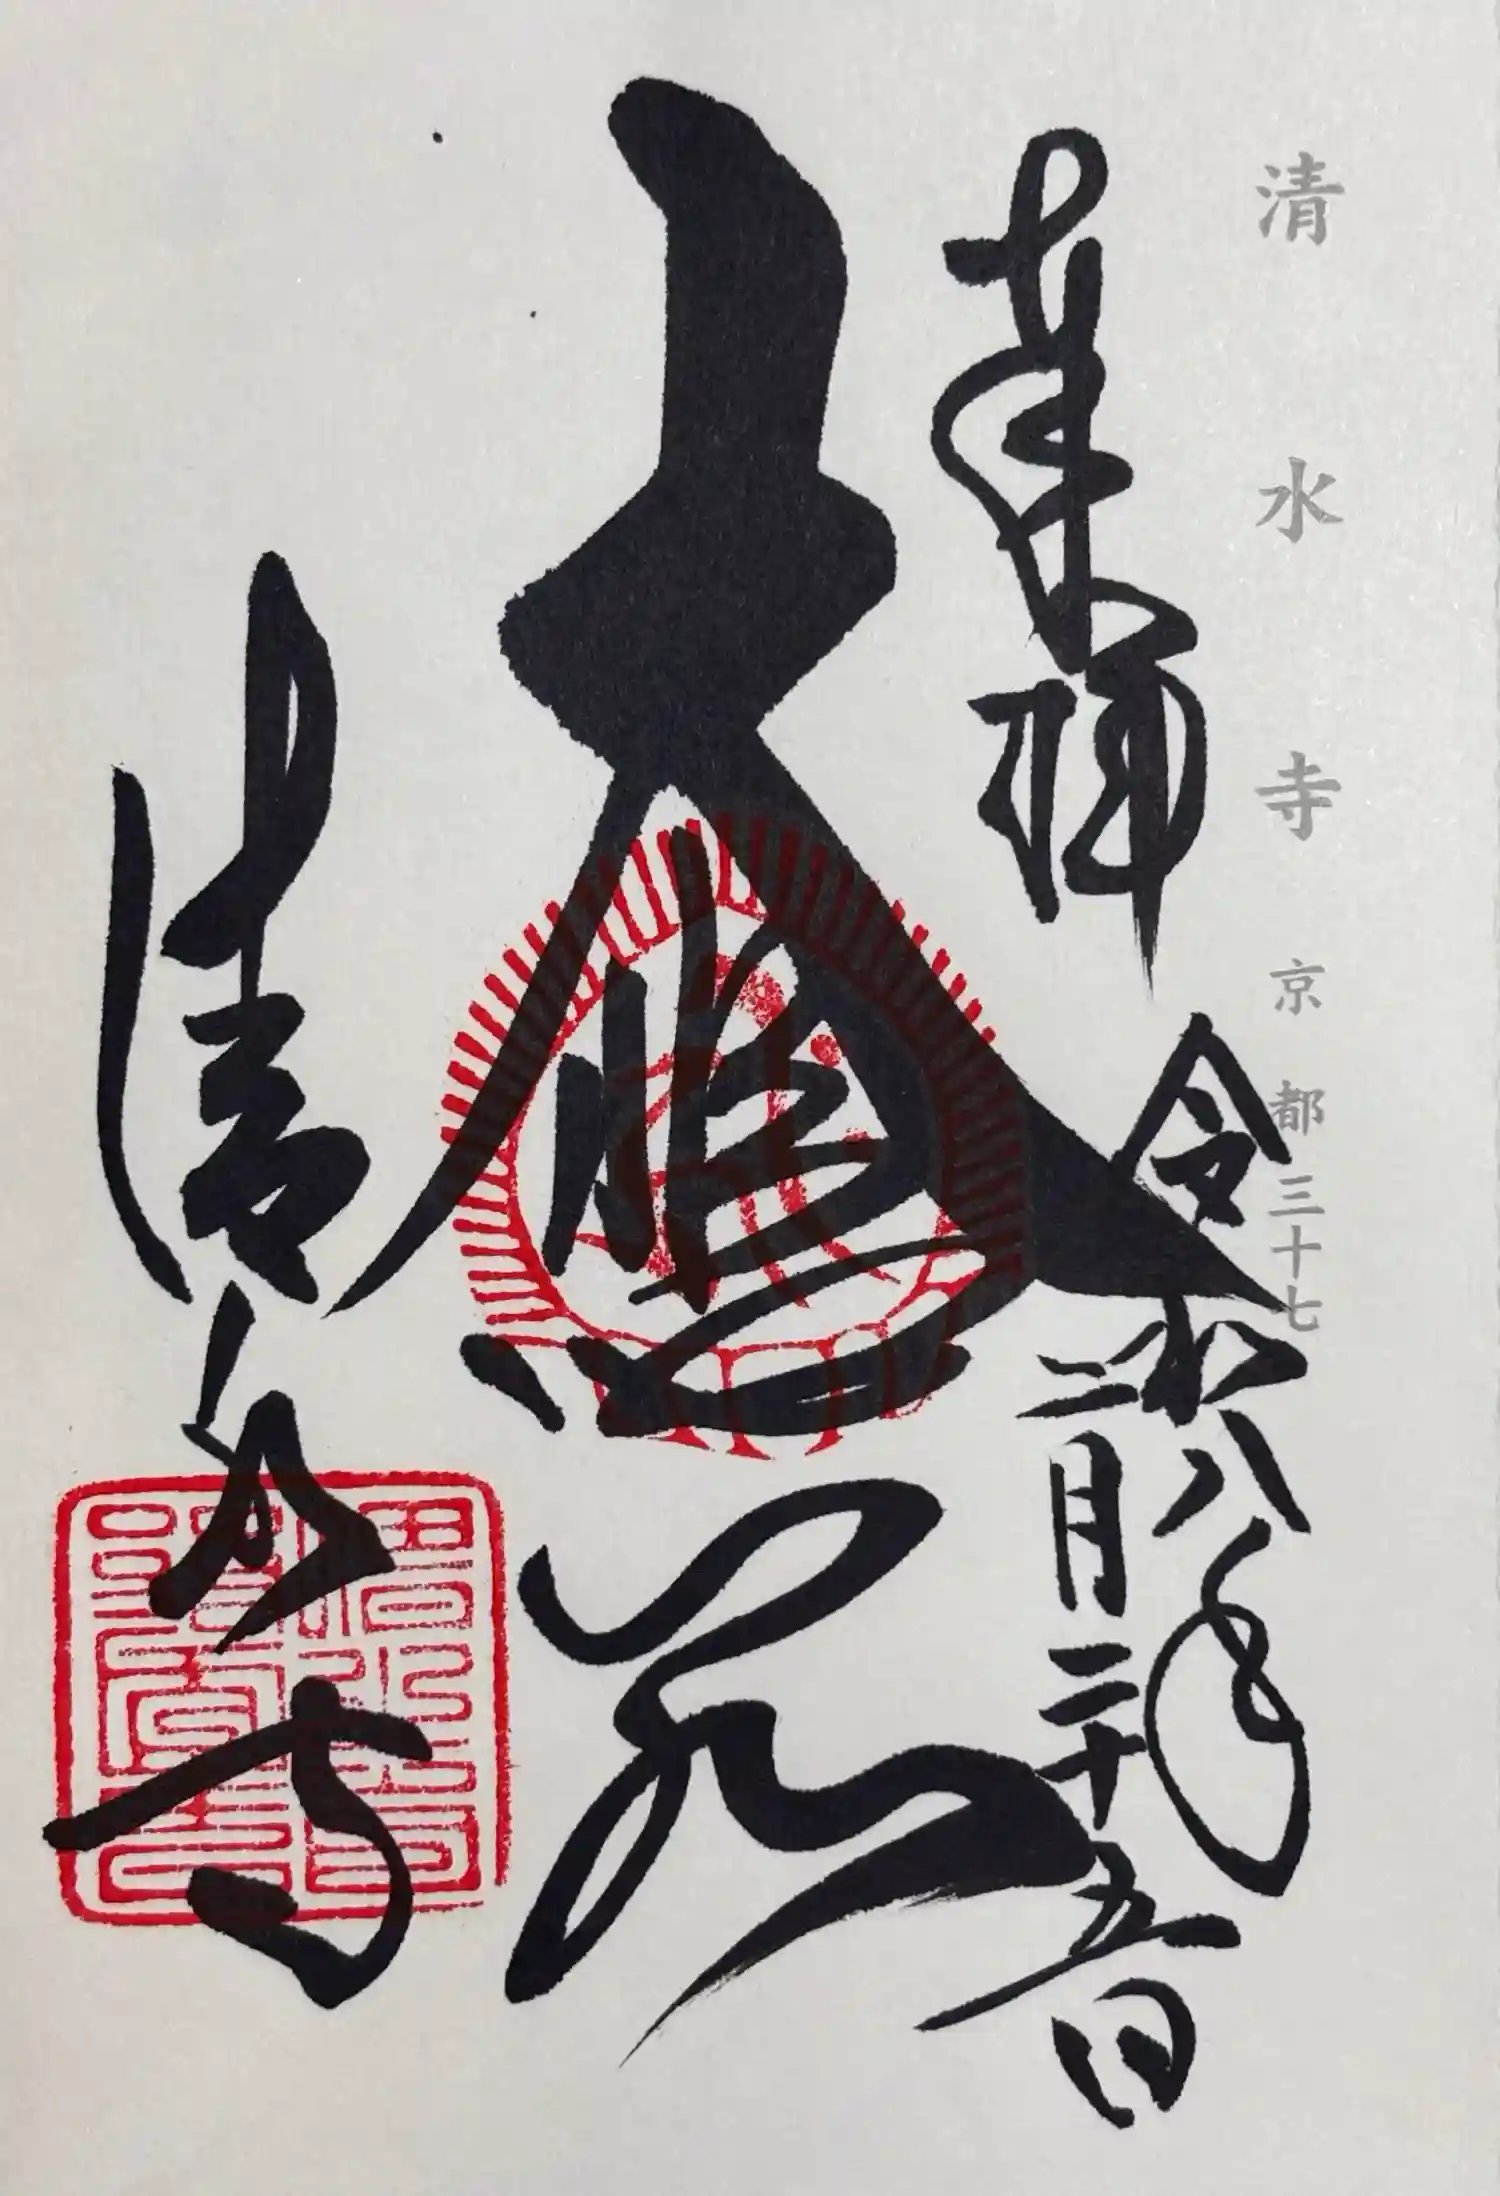 清水寺 京都 三十七
奉拝 令和八年
二月二十五日
大悲閣
清水寺